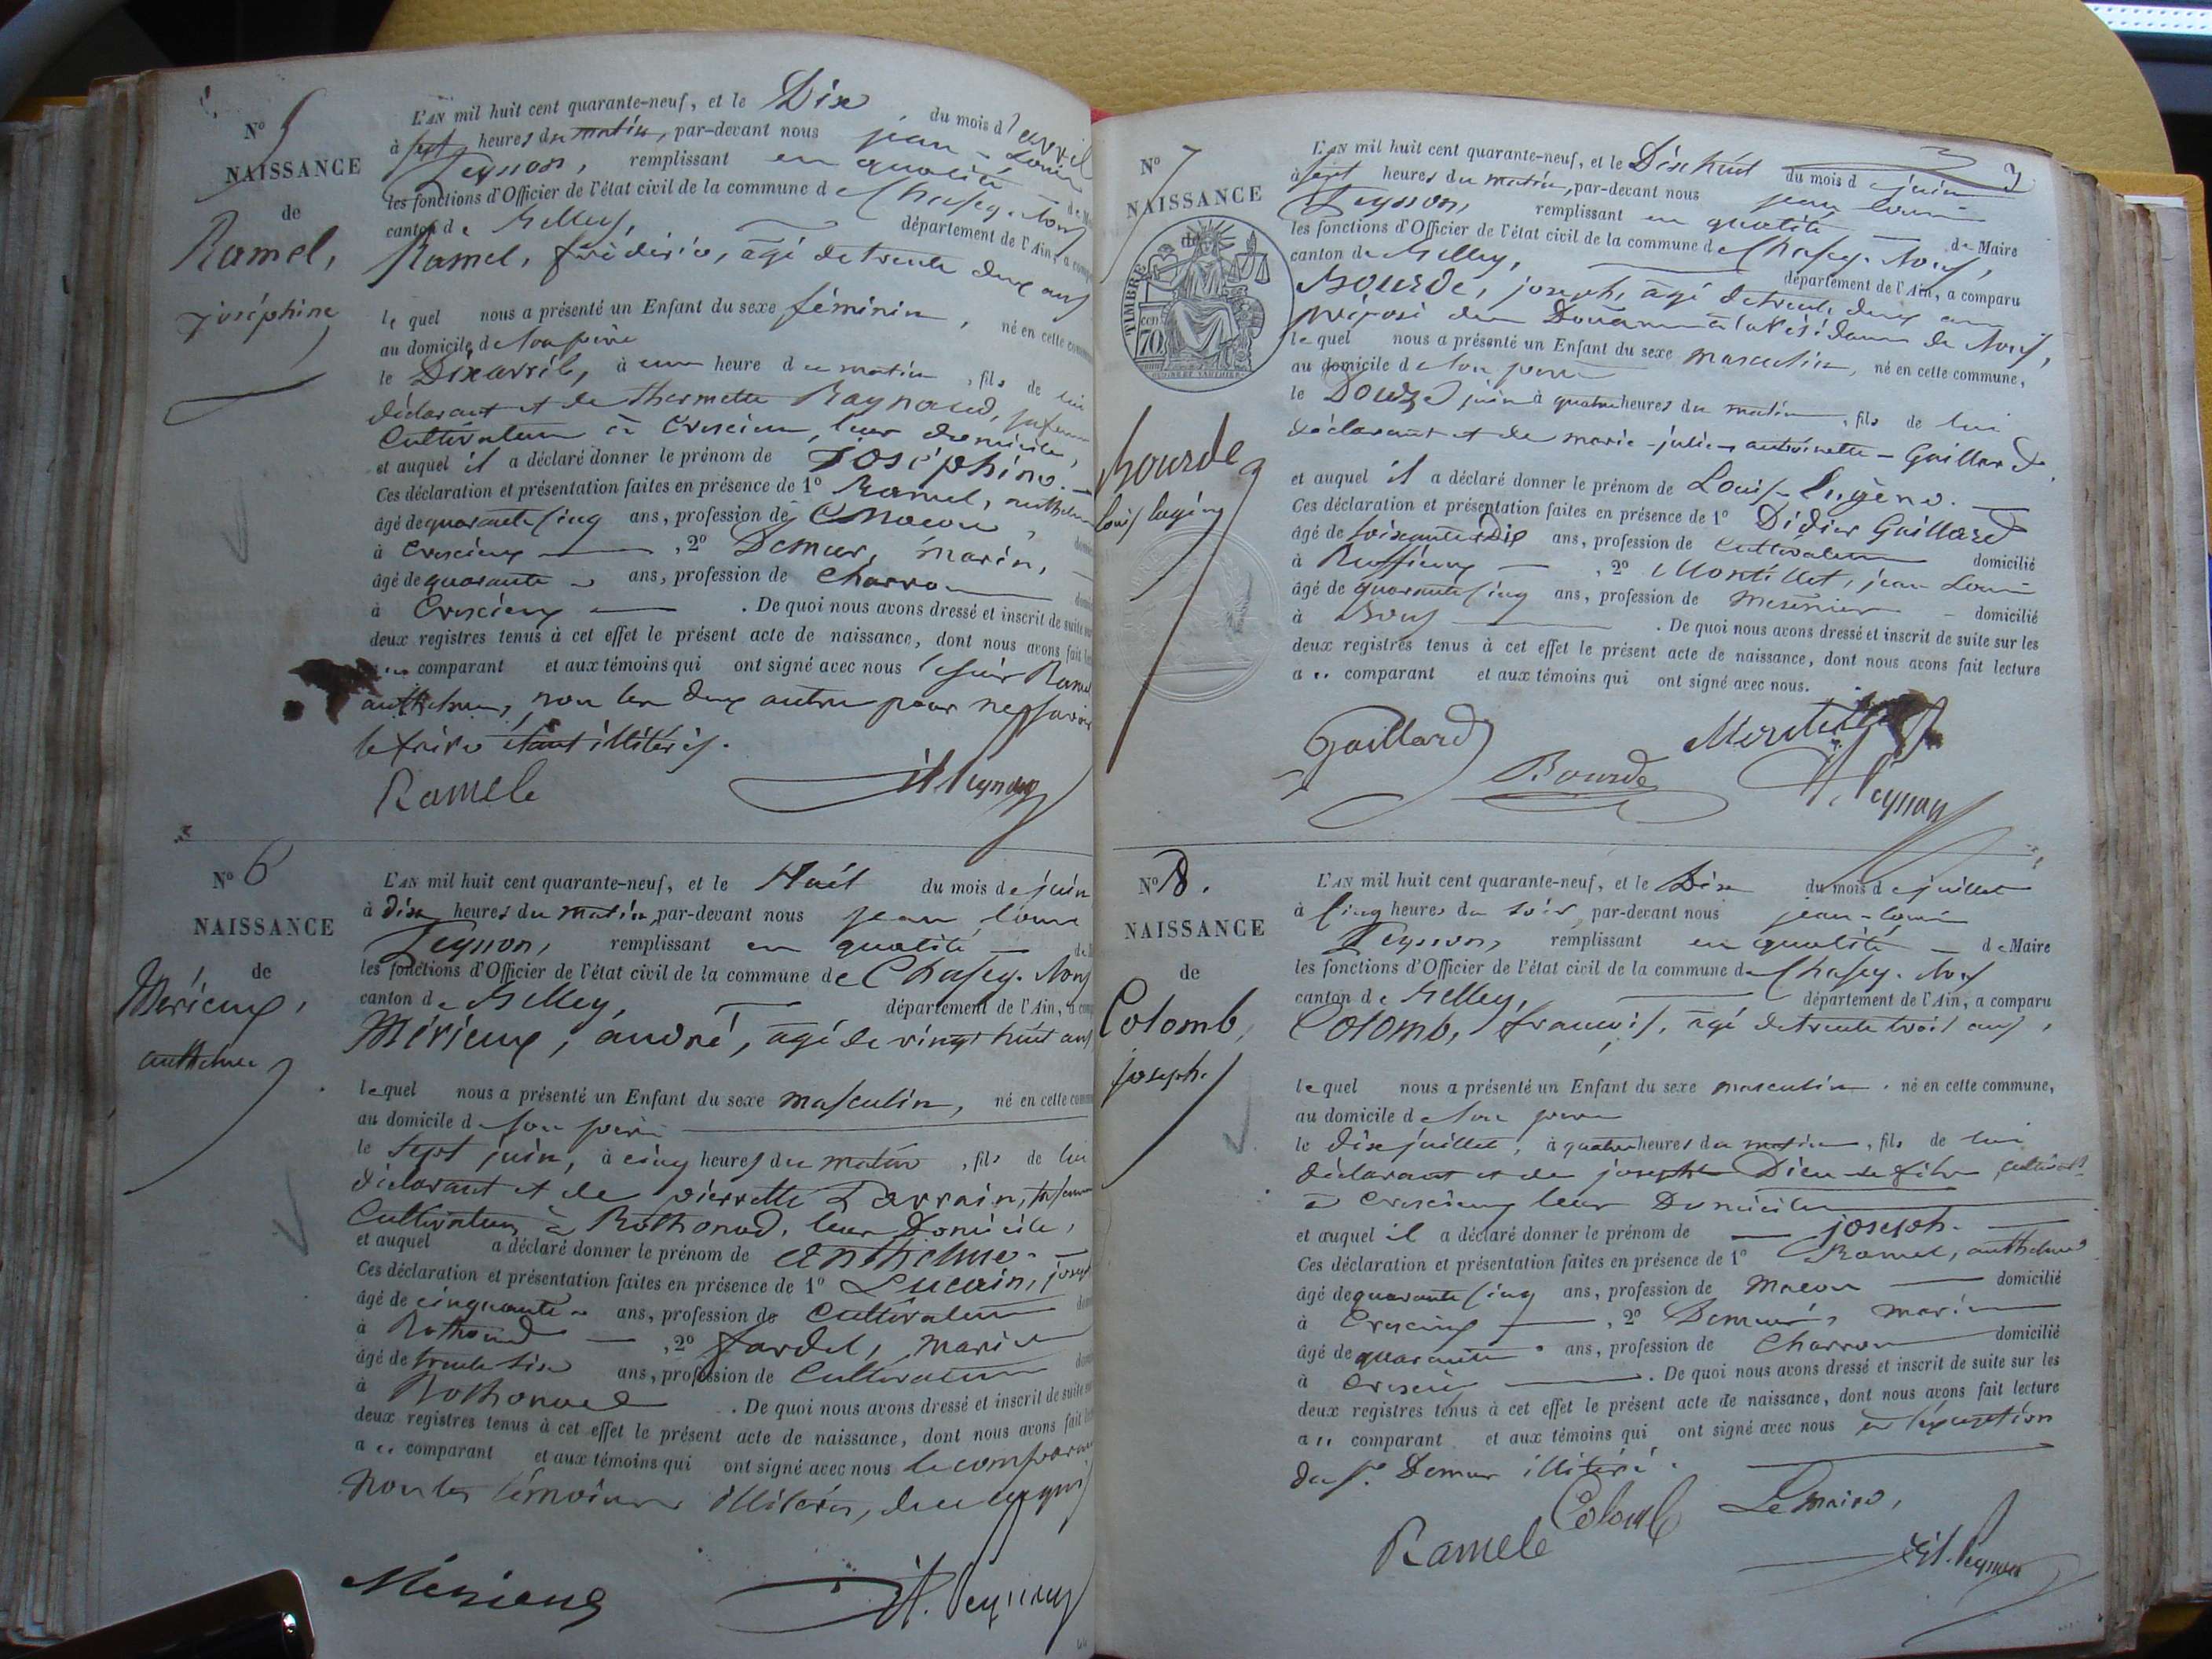 N° 5
NAISSANCE
de
Ramel,
joséphine
L'AN mil huit cent quarante-neuf, et le Dix du mois d'avril
à sept heures du matin, par-devant nous jean-Louis
Peysson, remplissant en qualité de
les fonctions d'Officier de l'état civil de la commune de Chasey-Bons
canton de Belley, département de l'Ain, a comp
Ramel, frédéric, agé de trente deux ans
le quel nous a présenté un Enfant du sexe féminin, né en cette comm
au domicile de son père
le Dix avril, à une heure du matin, fils de lui
déclarant et de thermette Raynaud, sa femme
Cultivateurs à Cressieux, leur domicile,
et auquel il a déclaré donner le prénom de joséphine.
Ces déclaration et présentation faites en présence de 1° Ramel, anthelme
âgé de quarante cinq ans, profession de Maçon,
à Cressieux, 2° Demeur, marin,
âgé de quarante ans, profession de Charron
à Cressieux. De quoi nous avons dressé et inscrit de suite sur
deux registres tenus à cet effet le présent acte de naissance, dont nous avons fait
comparant et aux témoins qui ont signé avec nous le sieur Ramel
anthelme, non les deux autres pour ne savoir
le faire étant illitérés.
Ramele
Peysson
N° 6
NAISSANCE
de
Mérieux,
anthelme
L'AN mil huit cent quarante-neuf, et le Huit du mois de juin
à dix heures du matin, par-devant nous jean louis
Peysson, remplissant en qualité
les fonctions d'Officier de l'état civil de la commune de Chasey-Bons
canton de Belley, département de l'Ain, a com
Mérieux, andré, agé de vingt huit ans
le quel nous a présenté un Enfant du sexe masculin, né en cette comm
au domicile de son père
le sept juin, à cinq heures du matin, fils de lui
déclarant et de pierrette Parrain, sa femme
Cultivateurs à Rothonod, leur Domicile,
et auquel a déclaré donner le prénom de anthelme.
Ces déclaration et présentation faites en présence de 1° Lucain, joseph
âgé de cinquante ans, profession de Cultivateur
à Rothonod, 2° fardel, marin
âgé de trente six ans, profession de Cultivateur
à Rothonod. De quoi nous avons dressé et inscrit de suite
deux registres tenus à cet effet le présent acte de naissance, dont nous avons fait
a .. comparant et aux témoins qui ont signé avec nous le comparant
non les témoins illitérés, de ce requis
Mérieux
Peysson
3
N° 7
NAISSANCE
de
TIMBRE
70
Bourde
louis eugène
L'AN mil huit cent quarante-neuf, et le Dix huit du mois de juin
à sept heures du matin, par-devant nous jean louis
Peysson, remplissant en qualité de Maire
les fonctions d'Officier de l'état civil de la commune de Chasey-Bons,
canton de Belley, département de l'Ain, a comparu
Bourde, joseph, agé de trente deux ans
préposé des Douanes à la Résidence de Bons,
le quel nous a présenté un Enfant du sexe masculin, né en cette commune,
au domicile de son père
le Douze juin à quatre heures du matin, fils de lui
déclarant et de marie-julie-antoinette-Gaillard
et auquel il a déclaré donner le prénom de Louis-Eugène.
Ces déclaration et présentation faites en présence de 1° Didier Gaillard
âgé de soixante Dix ans, profession de Cultivateur domicilié
à Ruffieux, 2° Montillet, jean Louis
âgé de quarante cinq ans, profession de Meunier domicilié
à Bons. De quoi nous avons dressé et inscrit de suite sur les
deux registres tenus à cet effet le présent acte de naissance, dont nous avons fait lecture
a .. comparant et aux témoins qui ont signé avec nous.
Gaillard
Montillet
Bourde
Peysson
N° 8.
NAISSANCE
de
Colomb,
joseph
L'AN mil huit cent quarante-neuf, et le Dix du mois de juillet
à cinq heures du soir, par-devant nous jean-louis
Peysson, remplissant en qualité de Maire
les fonctions d'Officier de l'état civil de la commune de Chasey-Bons
canton de Belley, département de l'Ain, a comparu
Colomb, françois, agé de trente trois ans,
le quel nous a présenté un Enfant du sexe masculin. né en cette commune,
au domicile de son père
le dix juillet, à quatre heures du matin, fils de lui
déclarant et de josephte Dieu-le-fils
à Cressieux leur Domicile
et auquel il a déclaré donner le prénom de joseph.
Ces déclaration et présentation faites en présence de 1° Ramel, anthelme
âgé de quarante cinq ans, profession de Macon domicilié
à Cressieux, 2° Demeur, marin
âgé de quarante ans, profession de Charron domicilié
à Cressieux. De quoi nous avons dressé et inscrit de suite sur les
deux registres tenus à cet effet le présent acte de naissance, dont nous avons fait lecture
a .. comparant et aux témoins qui ont signé avec nous à l'exception
du sr. Demeur illitéré.
Colomb
Le maire,
Ramele
Peysson